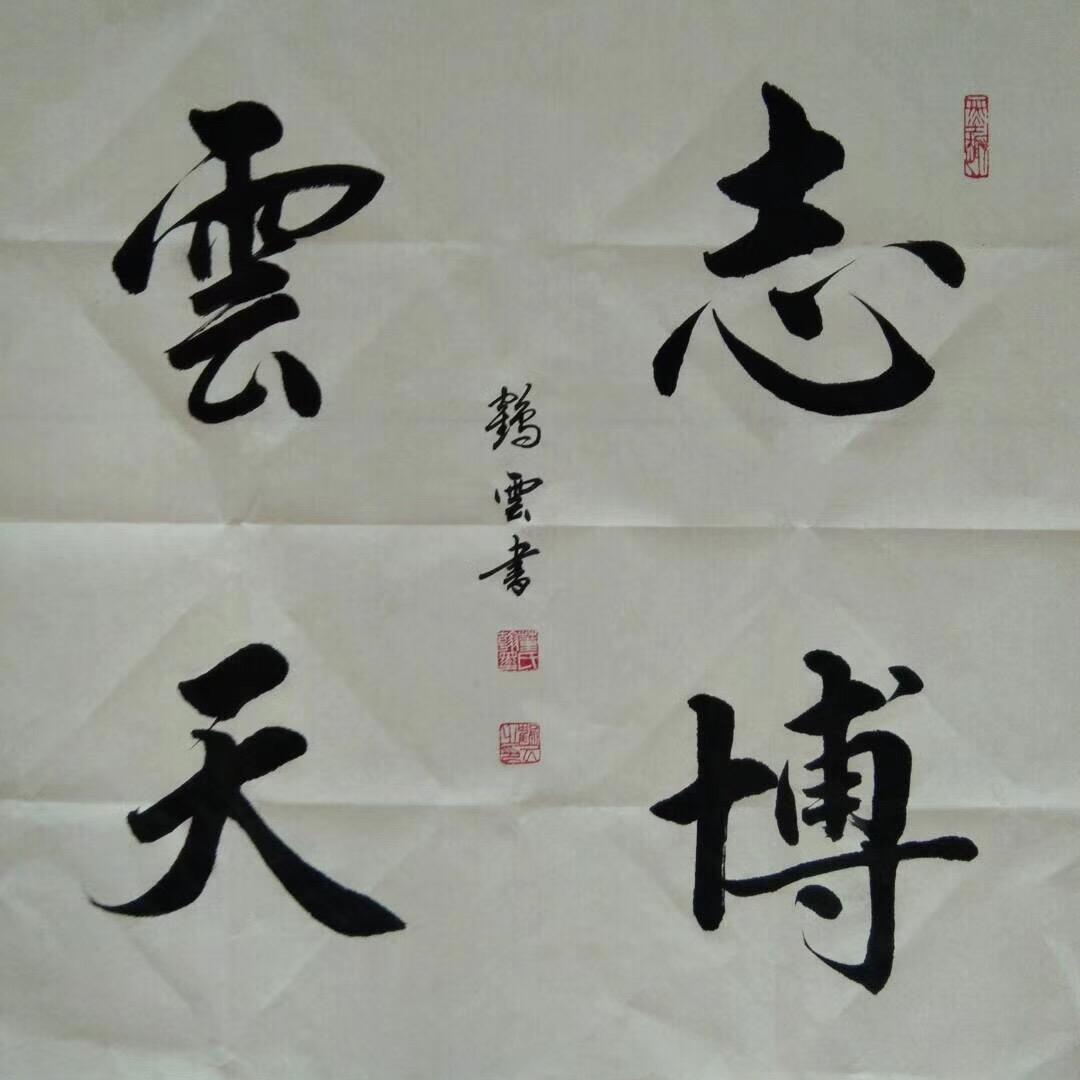 志博
雲天
鶴雲書